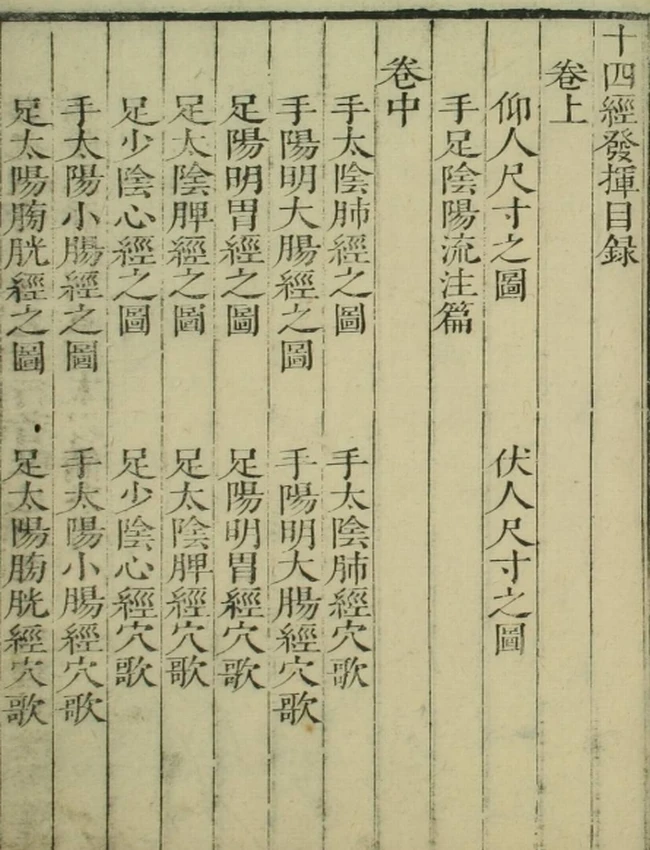 十四經發揮目録
卷上
仰人尺寸之圖 伏人尺寸之圖
手足陰陽流注篇
卷中
手太陰肺經之圖 手太陰肺經穴歌
手陽明大腸經之圖 手陽明大腸經穴歌
足陽明胃經之圖 足陽明胃經穴歌
足太陰脾經之圖 足太陰脾經穴歌
足少陰心經之圖 足少陰心經穴歌
手太陽小腸經之圖 手太陽小腸經穴歌
足太陽膀胱經之圖 足太陽膀胱經穴歌